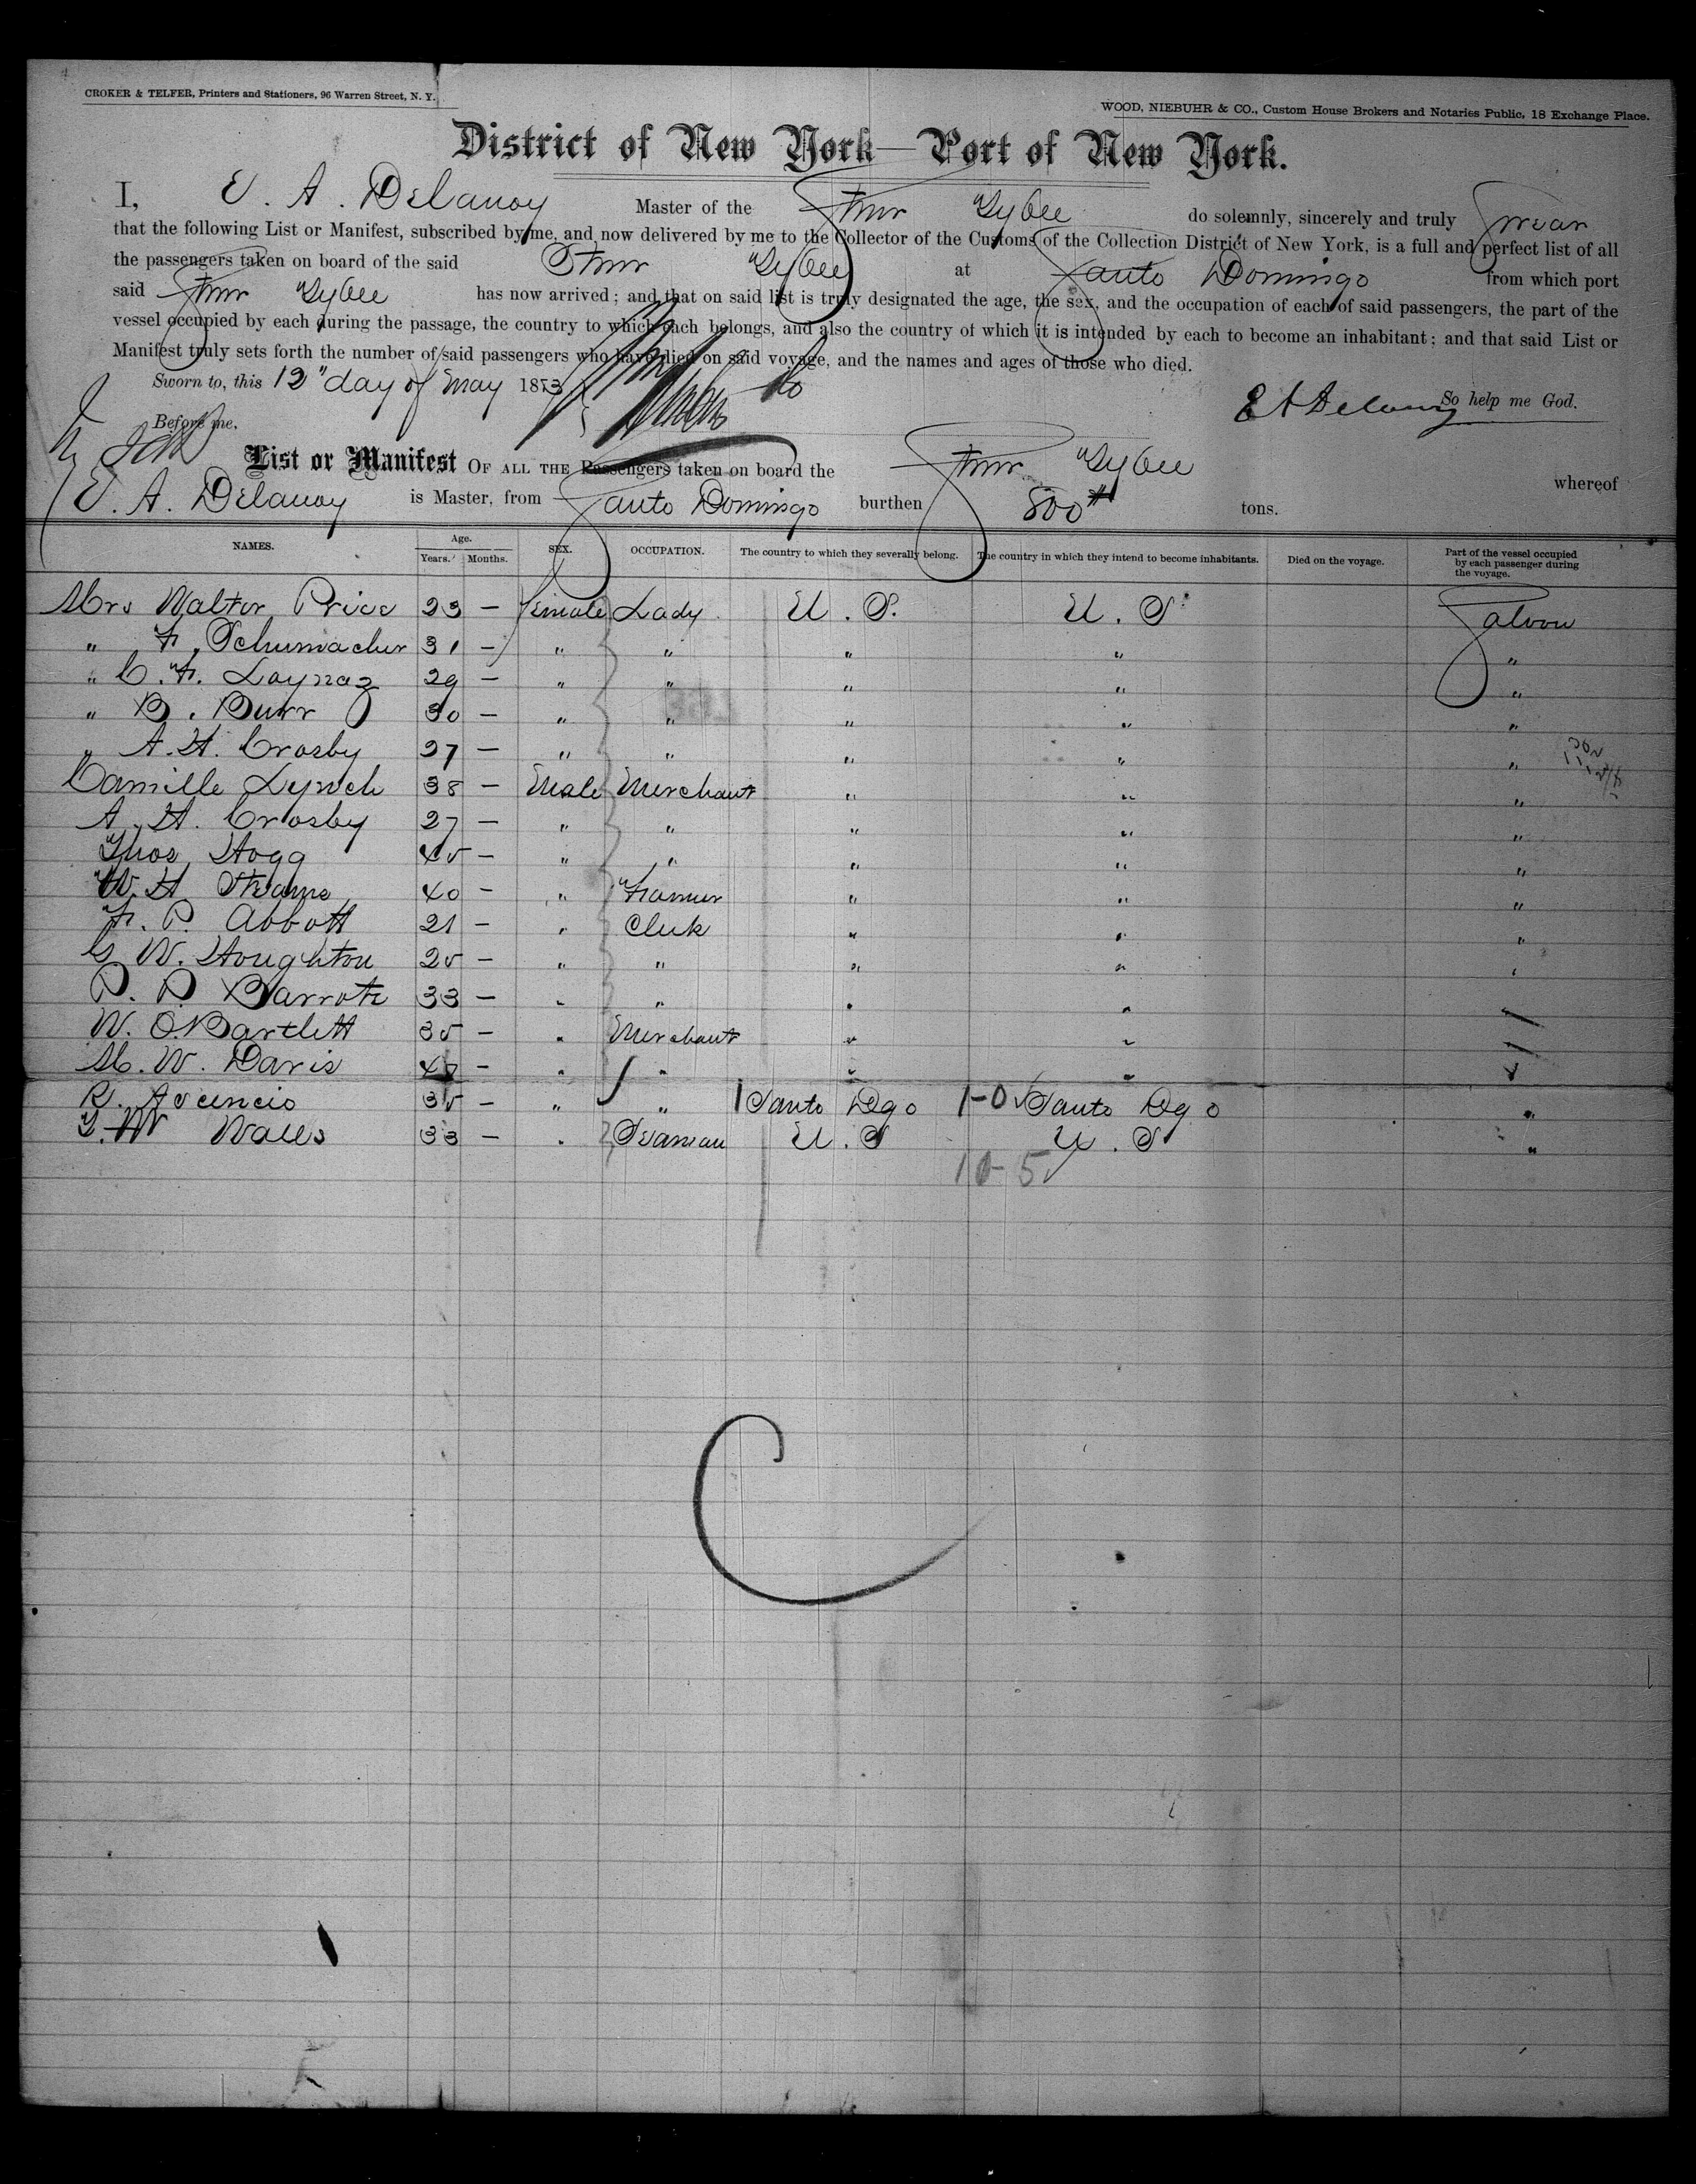 CROKER & TELFER, Printers and Stationers, 96 Warren Street, N. Y.
WOOD, NIEBUHR & CO., Custom House Brokers and Notaries Public, 18 Exchange Place.
District of New York—Port of New York.
I, E. A. Delanoy Master of the Stmr Tybee do solemnly, sincerely and truly swear
that the following List or Manifest, subscribed by me, and now delivered by me to the Collector of the Customs of the Collection District of New York, is a full and perfect list of all
the passengers taken on board of the said Stmr Tybee at Santo Domingo from which port
said Stmr Tybee has now arrived; and that on said list is truly designated the age, the sex, and the occupation of each of said passengers, the part of the
vessel occupied by each during the passage, the country to which each belongs, and also the country of which it is intended by each to become an inhabitant; and that said List or
Manifest truly sets forth the number of said passengers who have died on said voyage, and the names and ages of those who died.
Sworn to, this 12" day of May 1873
So help me God.
E A Delanoy
Before me,
List or Manifest OF ALL THE Passengers taken on board the Stmr Tybee whereof
E. A. Delanoy is Master, from Santo Domingo burthen 800 tons.
NAMES. Age. Years. Months. SEX. OCCUPATION. The country to which they severally belong. The country in which they intend to become inhabitants. Died on the voyage. Part of the vessel occupied by each passenger during the voyage.
Mrs Walter Price 23 — female Lady U. S. U. S. Saloon
" F. Schumacher 31 — " " " " "
" C. F. Loynaz 29 — " " " " "
" B. Burr 30 — " " " " "
" A. H. Crosby 27 — " " " " "
Camille Lynch 38 — Male Merchant " " "
A. H. Crosby 27 — " " " " "
Thos Hogg 45 — " " " " "
W. H 40 — " Farmer " " "
F. P. Abbott 21 — " Clerk " " "
G W. Houghton 25 — " " " " "
P. P. 33 — " " " "
W. O. Bartlett 35 — " Merchant " "
M. W. Davis — " " " "
R. Ascencio 35 — " " 1 Santo Dgo 1-0 Santo Dgo "
Wales 33 — " Seaman U. S U. S "
10-5
C